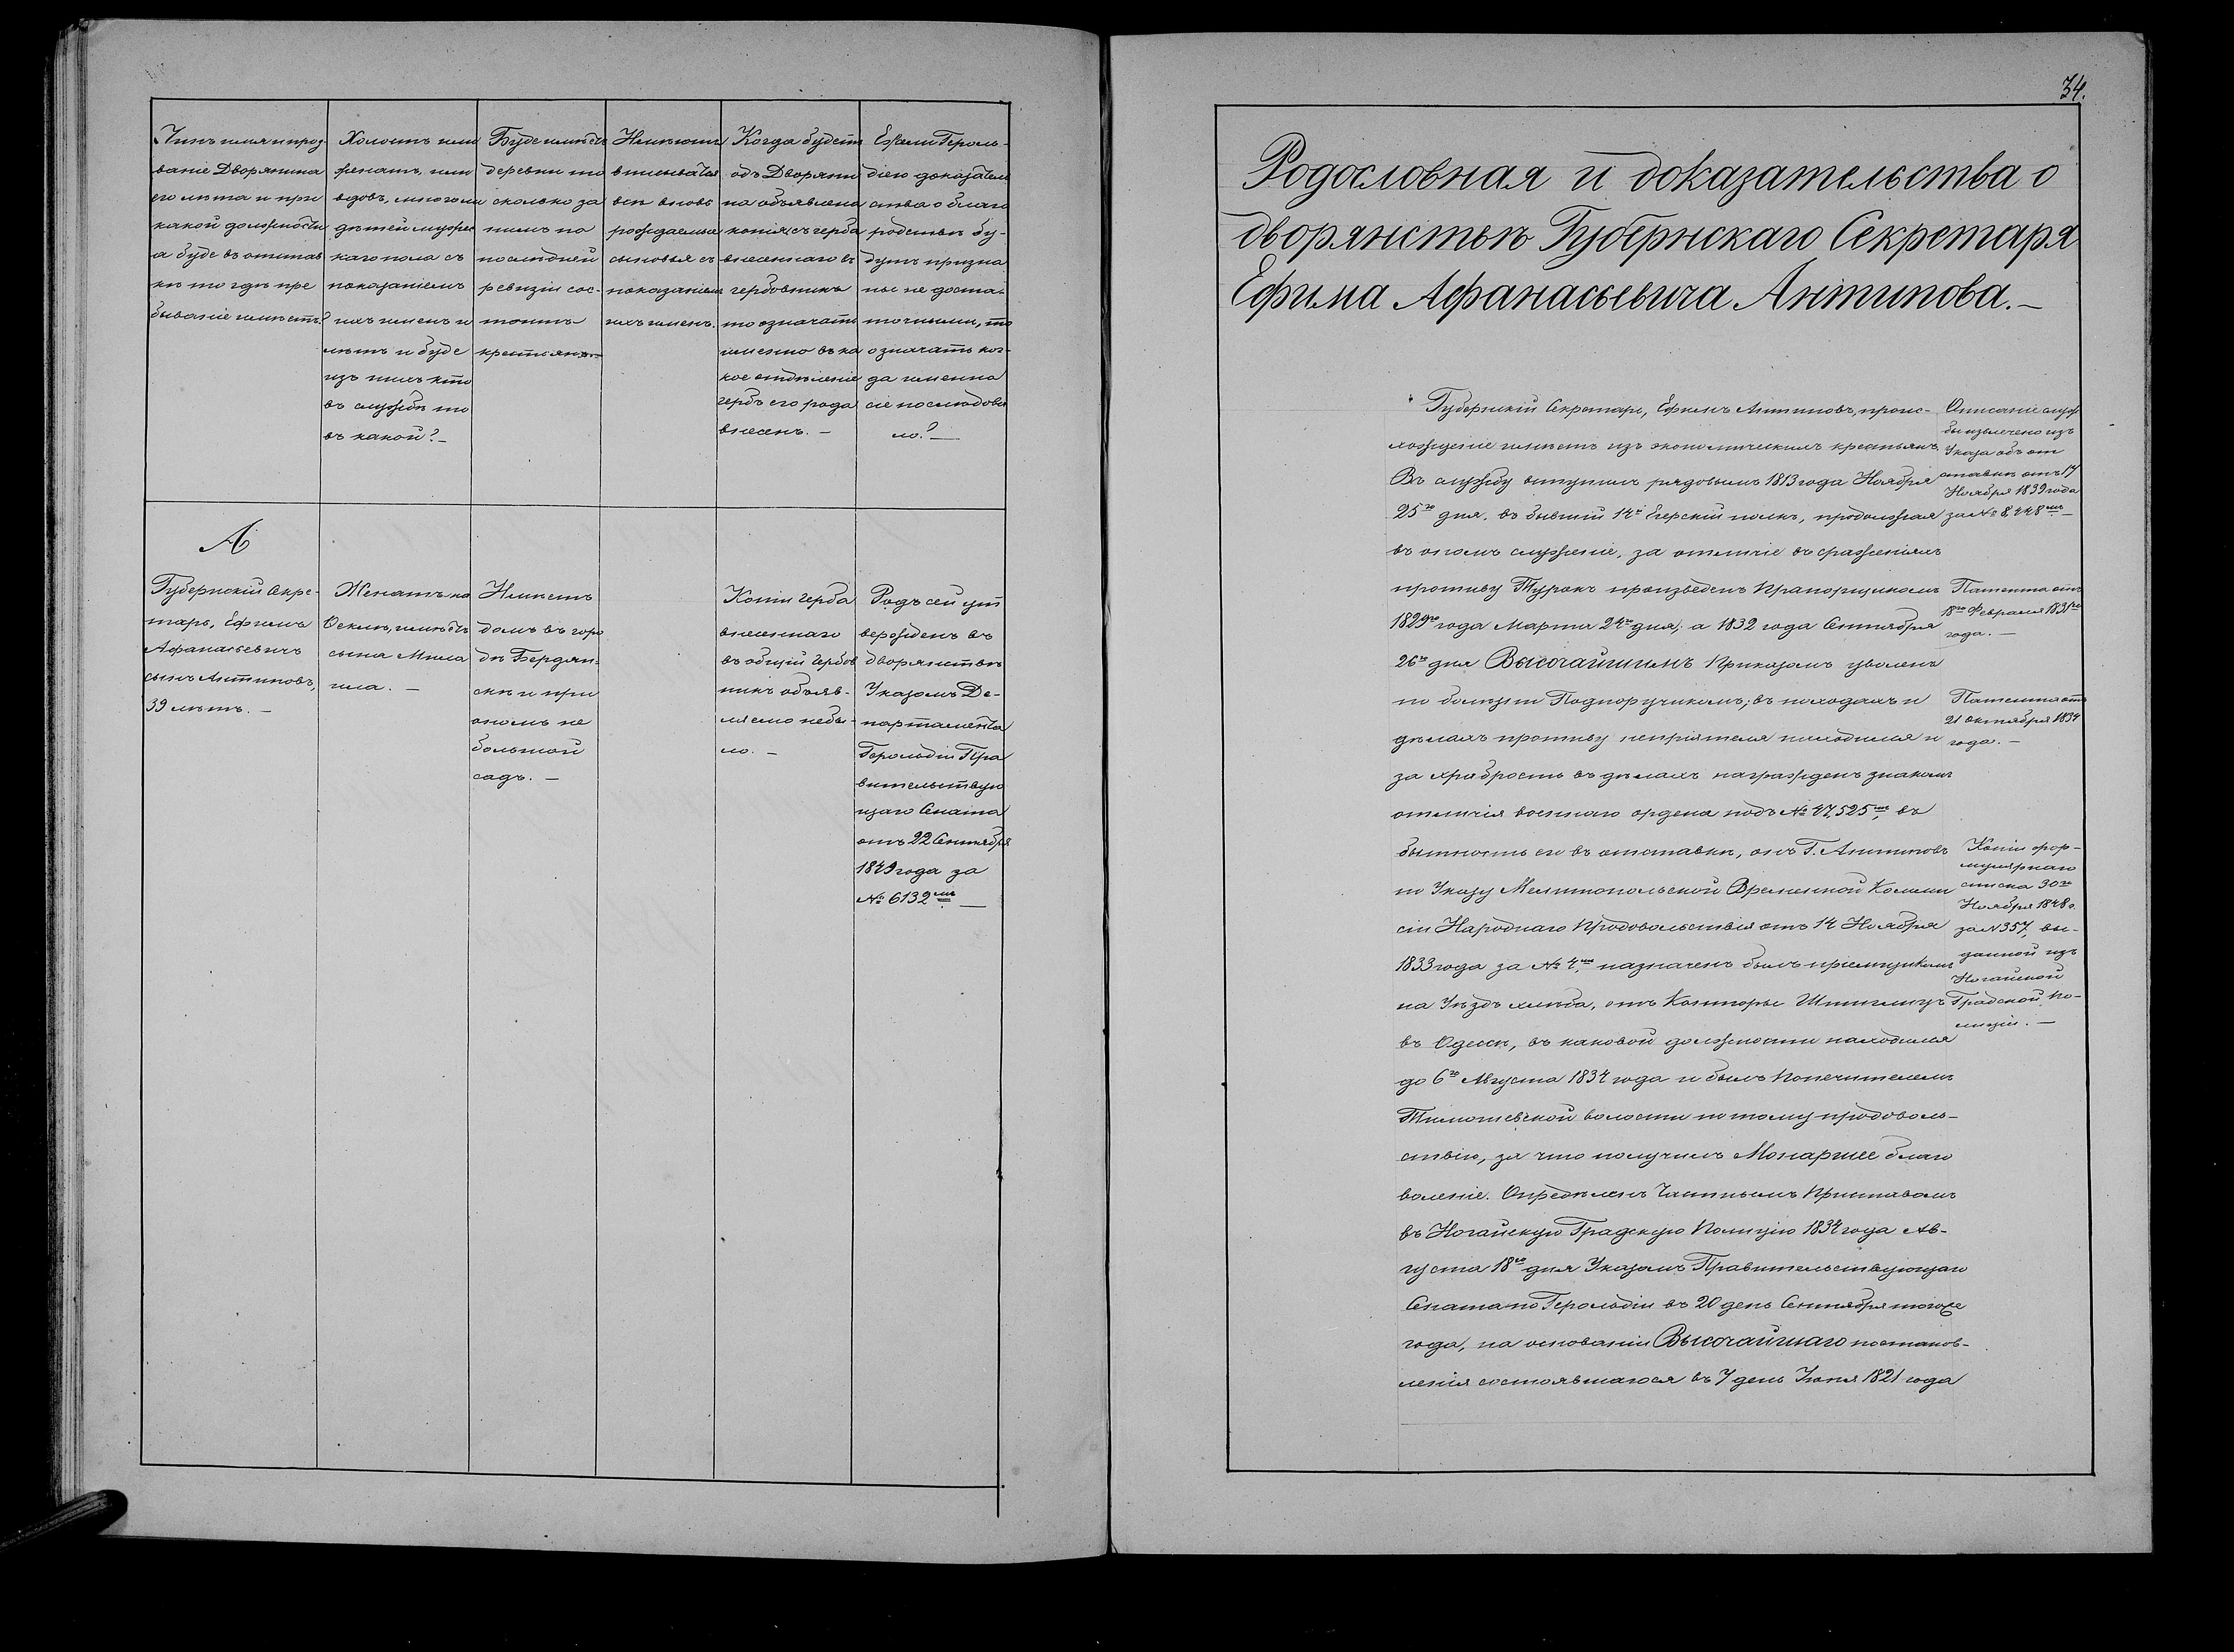 Чинъ имя и проз-
ваніе Дворянина
его лѣта и при
какой должности
а буде въ отстав
кѣ то гдѣ пре
бываніе имѣетъ?
Холостъ или
женатъ, или
вдовъ, много ли
дѣтей мужес
каго пола съ
показаніемъ
ихъ именъ и
лѣтъ и буде
изъ нихъ кто
въ службѣ то
въ какой? —
Буде имѣетъ
деревни то
сколько за
нимъ по
последней
ревизіи сос-
тоитъ
крестьянъ.—
Имѣютъ
вписываться
всѣ вновь
рождаемые
сыновья съ
показаніемъ
ихъ именъ.
Когда будетъ
одъ Дворяни
на объявлена
копія съ герба
внесеннаго въ
гербовникъ
то означать
именно въ ка
кое отдѣленіе
гербъ его рода
внесенъ. —
Ежели Героль-
діею доказатель
ства о благо
родствѣ бу-
дутъ призна
ны не доста-
точными, то
означать ког-
да именно
сіе последова
ло? —
А
Губернскій Секре-
тарь, Ефимъ
Афанасьевичъ
сынъ Антиповъ,
39 лѣтъ. —
Женатъ на
Феклѣ, имѣетъ
сына Миха
ила. —
Имѣетъ
домъ въ горо
дѣ Бердян-
скѣ и при
ономъ не
большой
садъ. —
Копіи герба
внесеннаго
въ общій Гербов
никъ объяв-
ляемо небы-
ло. —
Родъ сей ут
вержденъ въ
дворянствѣ
Указомъ Де-
партамента
Герольдіи Пра
вительствую
щаго Сената
отъ 22 Сентября
1849 года за
№ 6132мъ. —
34.
Родословная и доказательства о
дворянствѣ Губернскаго Секретаря
Ефима Афанасьевича Антипова. —
Губернскій Секретарь, Ефимъ Антиповъ, проис-
хожденіе имѣетъ изъ экономическихъ крестьянъ.
Въ службу вступилъ рядовымъ 1813 года Ноября
25го дня, въ бывшій 14й Егерскій полкъ, продолжая
въ ономъ служеніе, за отличіе въ сраженіяхъ
противу Турокъ произведенъ Прапорщикомъ
1829го года Марта 24го дня; а 1832 года Сентября
26го дня Высочайшимъ Приказомъ уволенъ
по болѣзни Подпоручикомъ; въ походахъ и
дѣлахъ противу непріятеля находился и
за храбрость въ дѣлахъ награжденъ знакомъ
отличія военнаго ордена подъ № 47,525мъ, въ
бытность его въ отставкѣ, онъ Г. Антиповъ
по Указу Мелитопольской Временной Комми
сіи Народнаго Продовольствія отъ 14 Ноября
1833 года за № 4мъ назначенъ былъ пріемщикомъ
на Уѣздъ хлѣба, отъ Конторы Штиглицъ
въ Одессѣ, въ каковой должности находился
до 6го Августа 1834 года и былъ Попечителемъ
Тимошевской волости по тому продоволь-
ствію, за что получилъ Монаршее благо
воленіе. Опредѣленъ Частнымъ Приставомъ
въ Ногайскую Градскую Полицію 1834 года Ав-
густа 18го дня Указомъ Правительствующаго
Сената по Герольдіи въ 20 день Сентября тогоже
года, на основаніи Высочайшаго постанов-
ленія состоявшагося въ 7 день Іюня 1821 года
Описаніе служ
бы извлечено изъ
Указа объ от
ставкѣ отъ 17
Ноября 1839 года
за № 8,448мъ —
Патента отъ
18го Февраля 1831го
года. —
Патента отъ
21 Октября 1834
года. —
Копіи фор-
мулярнаго
списка 30го
Ноября 1848 г.
за № 357, вы-
данной изъ
Ногайской
Градской По-
лиціи. —